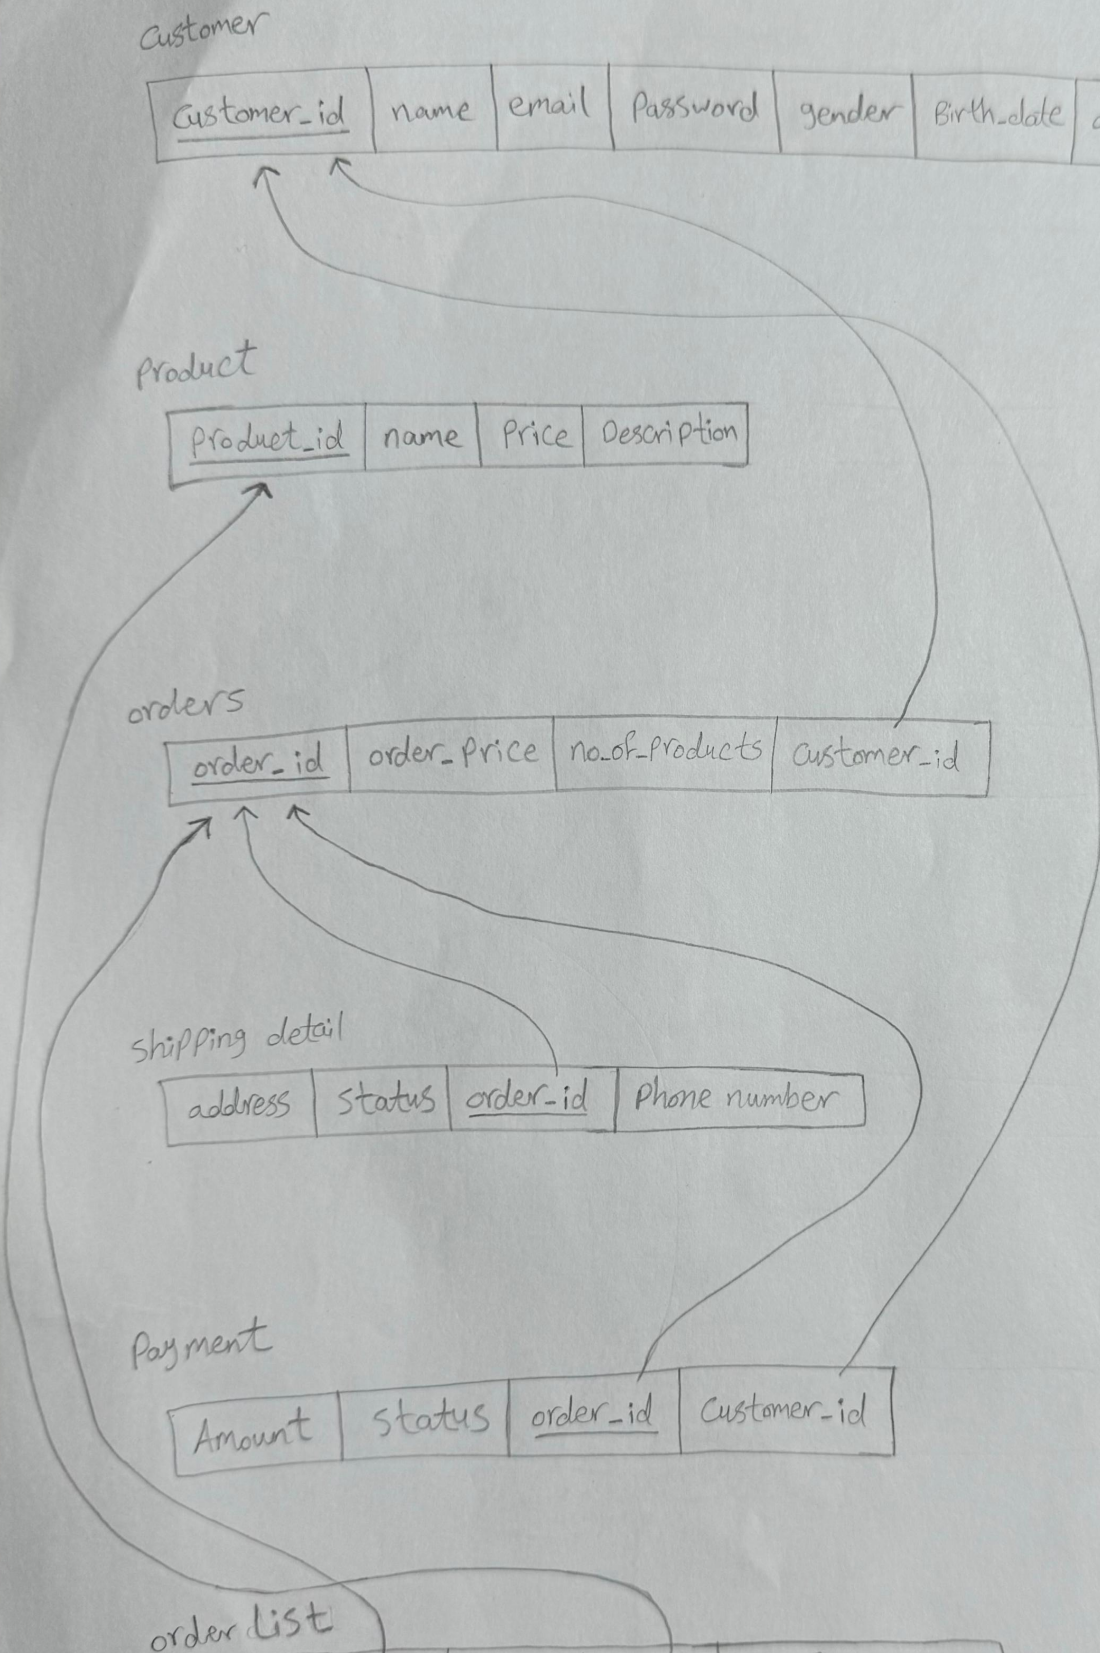 Customer
Customer_id name email Password gender Birth_date
Product
Product_id name Price Description
orders
order_id order_Price no_of_Products Customer_id
shipping detail
address status order_id Phone number
Payment
Amount status order_id Customer_id
order List